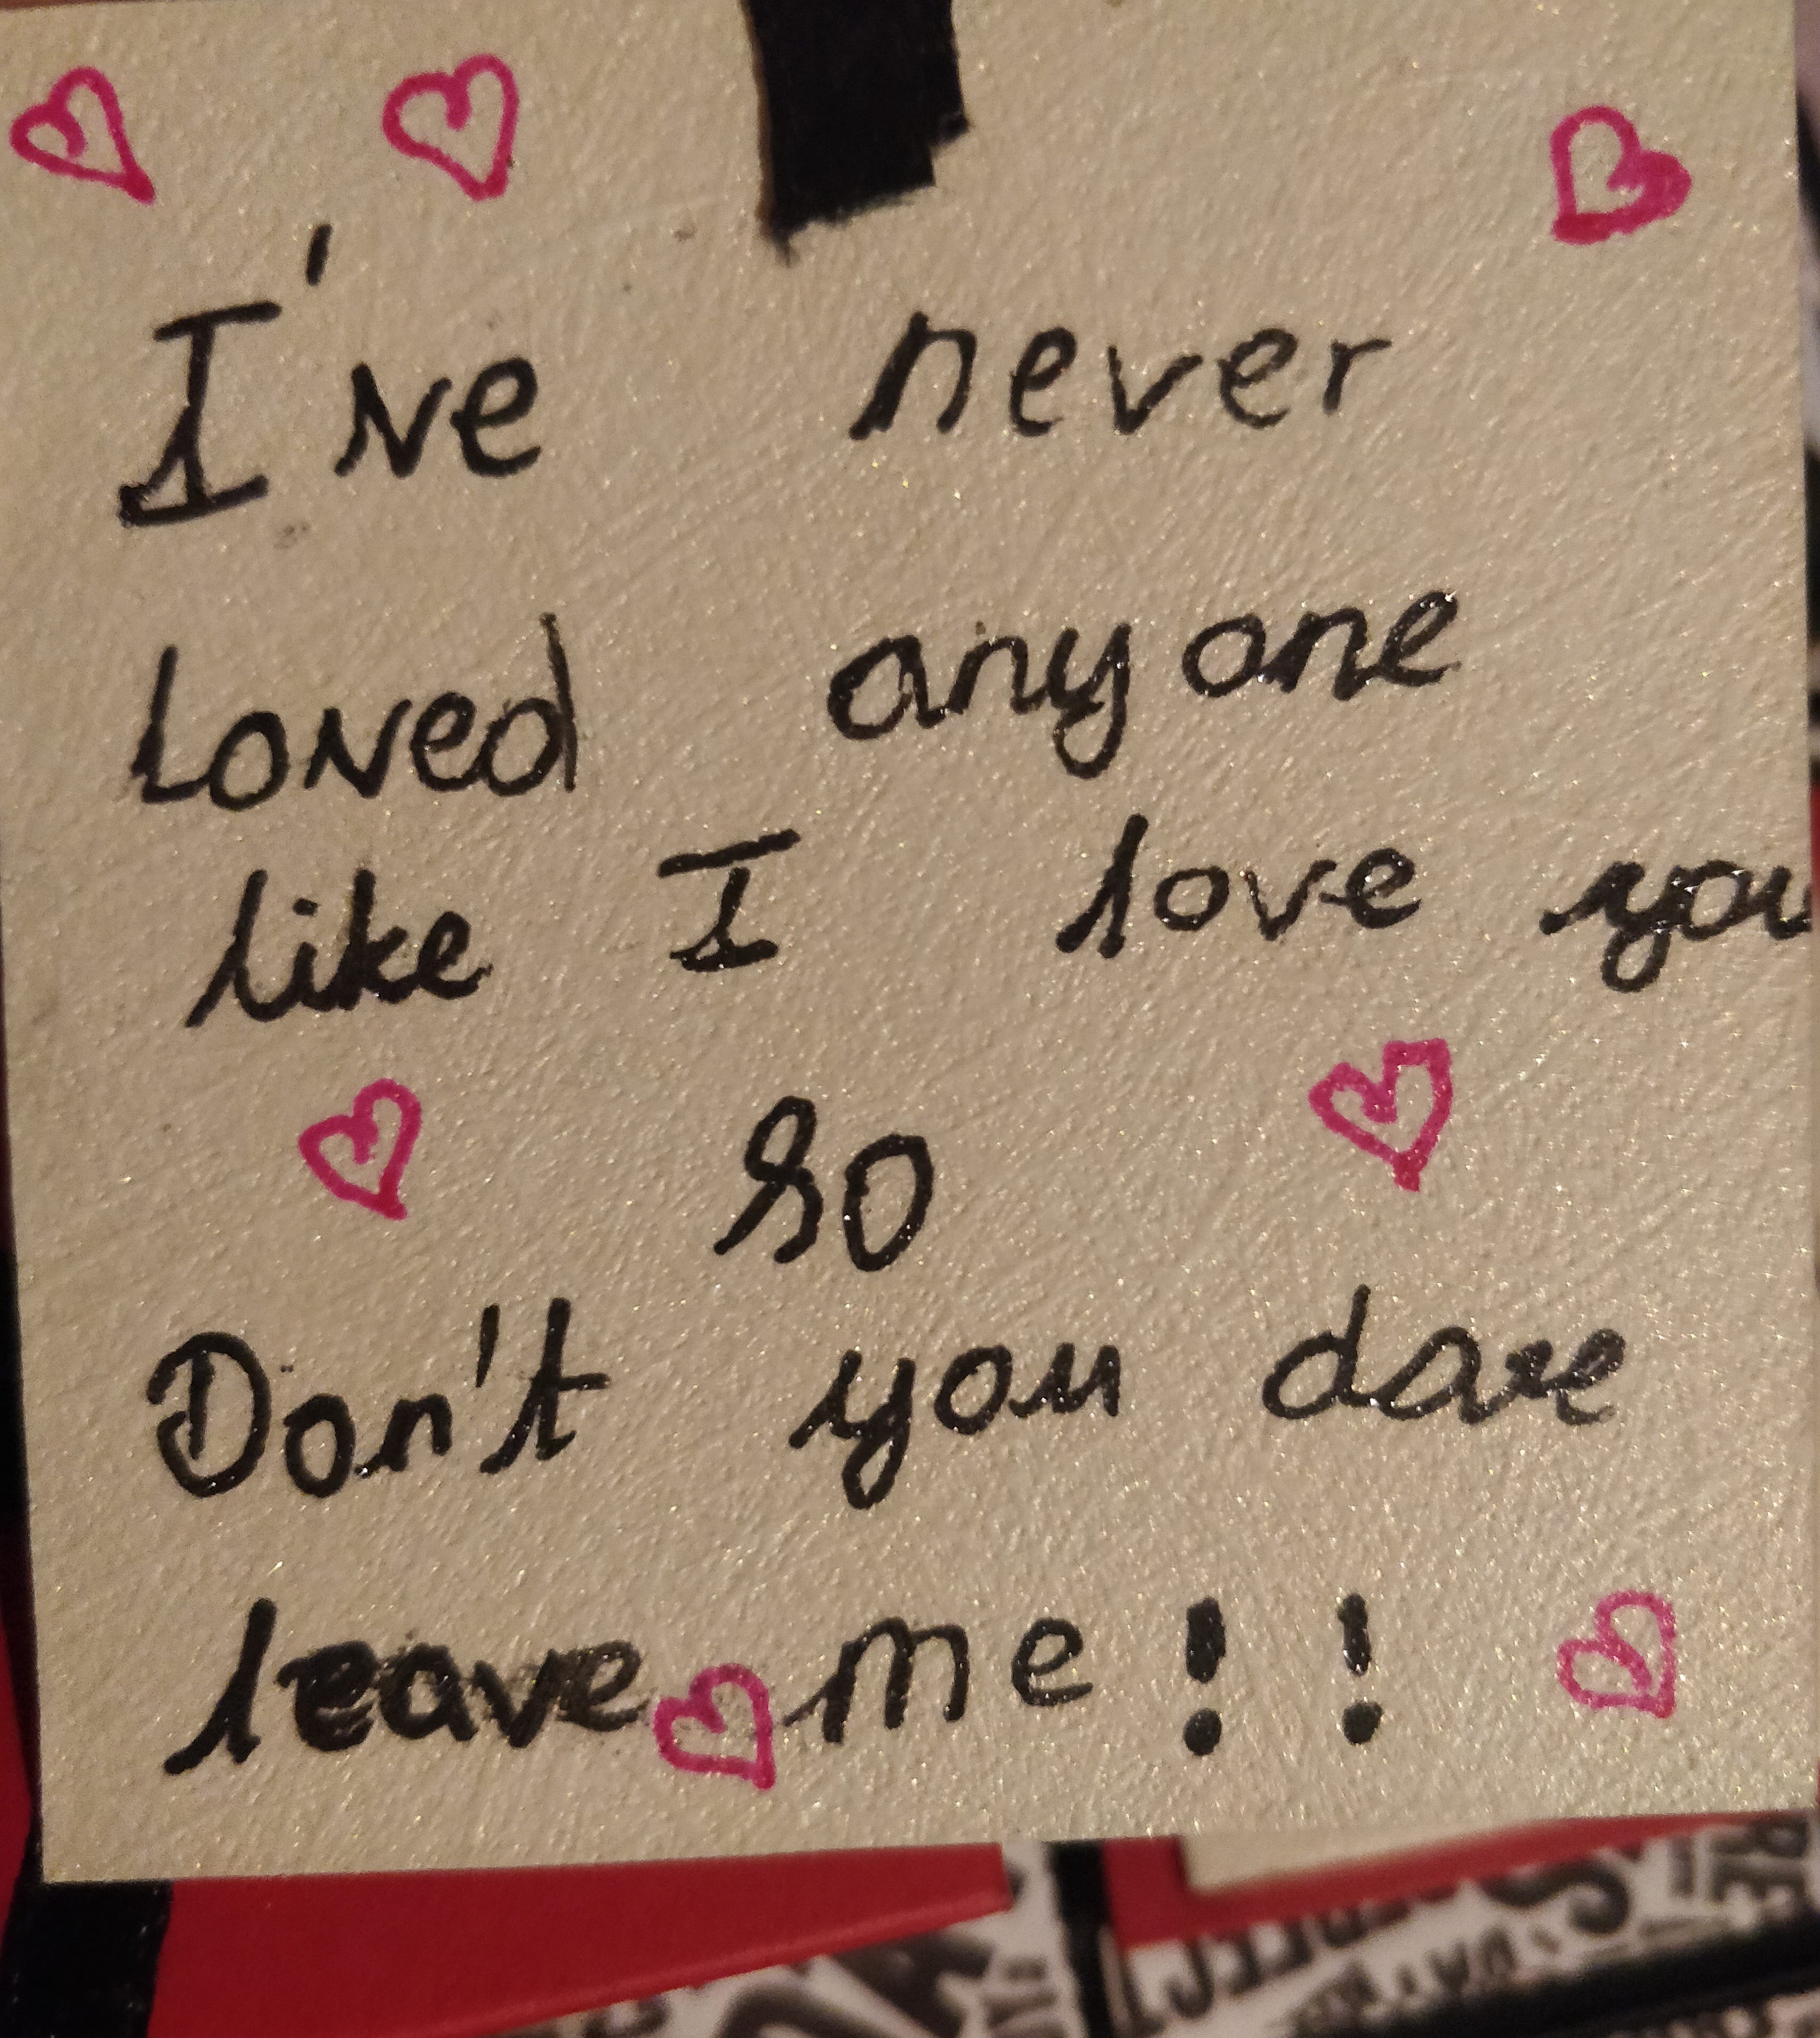 I've never
Loved anyone
like I love you
so
Don't you dare
leave me!!